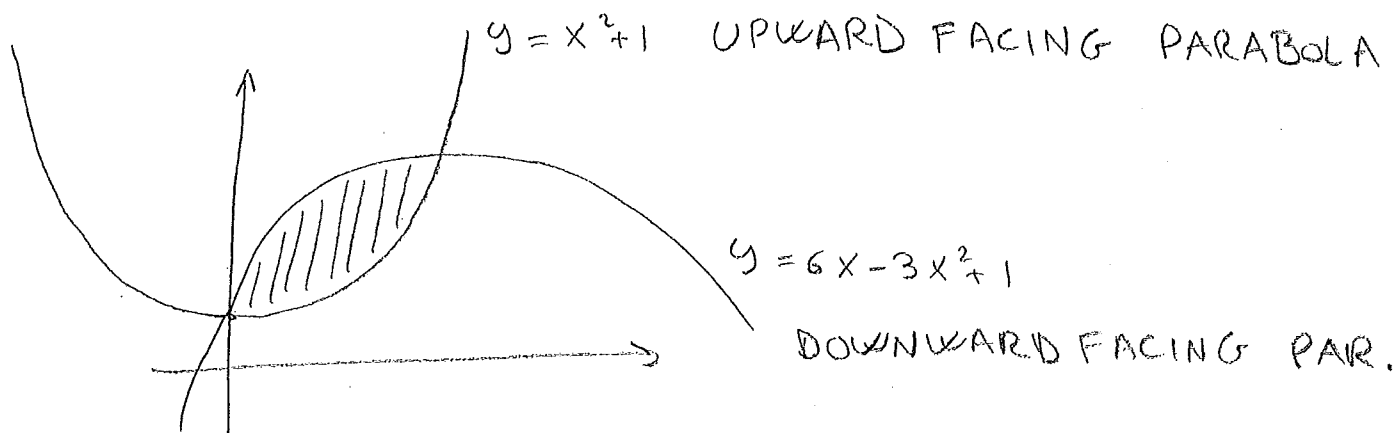 y = x²+1 UPWARD FACING PARABOLA
y = 6x-3x²+1
DOWNWARD FACING PAR.